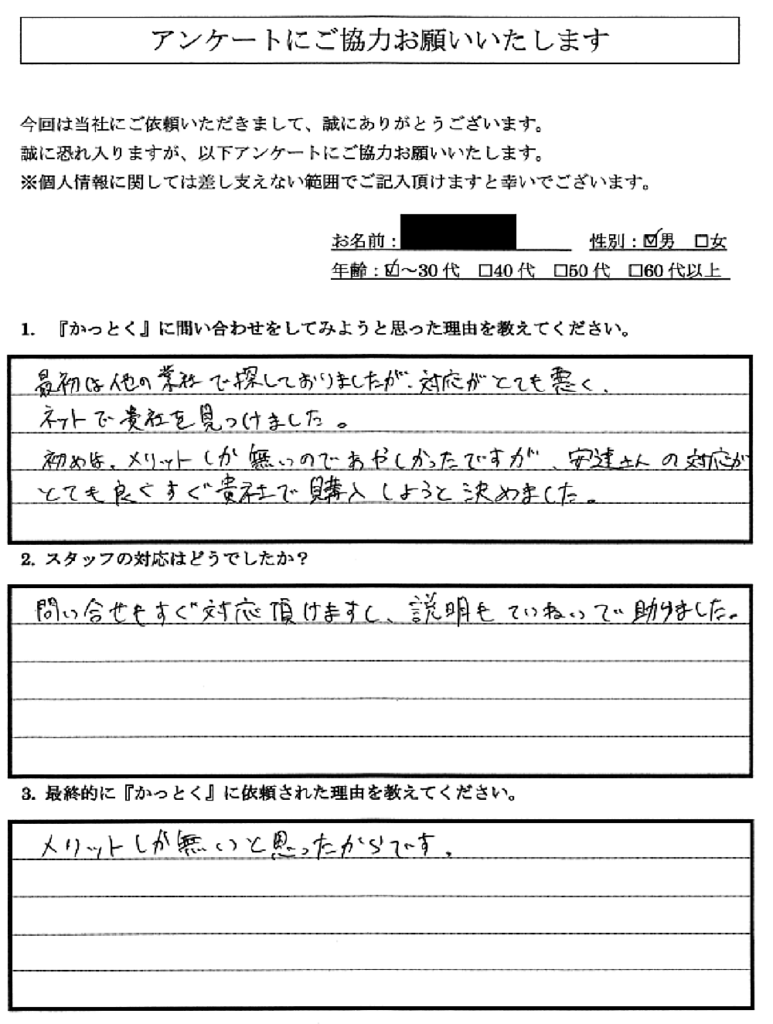 アンケートにご協力お願いいたします
今回は当社にご依頼いただきまして、誠にありがとうございます。
誠に恐れ入りますが、以下アンケートにご協力お願いいたします。
※個人情報に関しては差し支えない範囲でご記入頂けますと幸いでございます。
お名前： 性別：☑男 □女
年齢：☑～30代 □40代 □50代 □60代以上
1. 『かっとく』に問い合わせをしてみようと思った理由を教えてください。
最初は他の業社で探しておりましたが、対応がとても悪く、
ネットで貴社を見つけました。
初めは、メリットしか無いのであやしかったですが、安達さんの対応が
とても良くすぐ貴社で購入しようと決めました。
2. スタッフの対応はどうでしたか？
問い合せもすぐ対応頂けますし、説明もていねいで助けました。
3. 最終的に『かっとく』に依頼された理由を教えてください。
メリットしか無いと思ったからです。